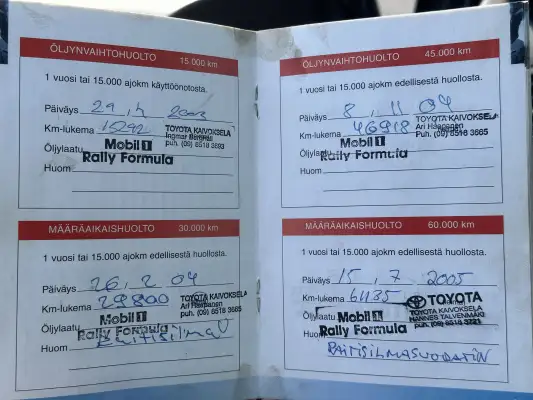 ÖLJYNVAIHTOHUOLTO 15.000 km
1 vuosi tai 15.000 ajokm käyttöönotosta.
Päiväys 29, 4 2003
Km-lukema 15292
TOYOTA KAIVOKSELA
Ingmar
puh. (09) 8518 3693
Öljylaatu Mobil 1
Rally Formula
Huom
MÄÄRÄAIKAISHUOLTO 30.000 km
1 vuosi tai 15.000 ajokm edellisestä huollosta.
Päiväys 26, 2 04
Km-lukema 29800
TOYOTA KAIVOKSELA
Ari
puh. (09) 8518 3665
Öljylaatu Mobil 1
Rally Formula
Huom
ÖLJYNVAIHTOHUOLTO 45.000 km
1 vuosi tai 15.000 ajokm edellisestä huollosta.
Päiväys 8, 11 04
Km-lukema 46918
TOYOTA KAIVOKSELA
Ari
puh. (09) 8518 3665
Öljylaatu Mobil 1
Rally Formula
Huom
MÄÄRÄAIKAISHUOLTO 60.000 km
1 vuosi tai 15.000 ajokm edellisestä huollosta.
Päiväys 15, 7 2005
Km-lukema 61135
TOYOTA
TOYOTA KAIVOKSELA
HANNES TALVENMÄKI
puh. (09) 8518 3721
Öljylaatu Mobil 1
Rally Formula
Huom
RAITISILMASUODATIN